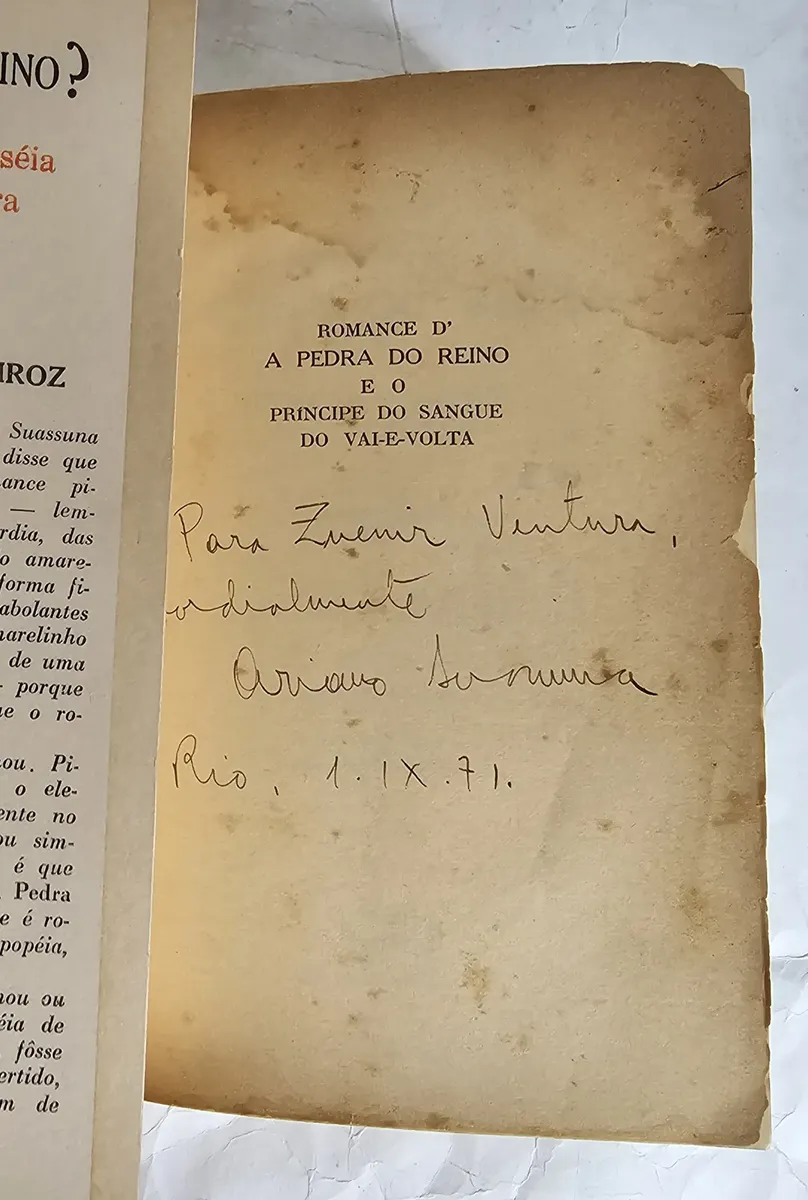 INO?
séia
ra
IROZ
Suassuna
disse que
ance pi-
— lem-
rdia, das
o amare-
forma fi-
abolantes
narelinho
de uma
porque
ue o ro-
ou. Pi-
o ele-
ente no
ou sim-
é que
Pedra
e é ro-
popéia,
nou ou
éia de
fôsse
ertido,
m de
ROMANCE D'
A PEDRA DO REINO
E O
PRÍNCIPE DO SANGUE
DO VAI-E-VOLTA
Para Zuenir Ventura,
ordialmente
Ariano Suassuna
Rio, 1.IX.71.